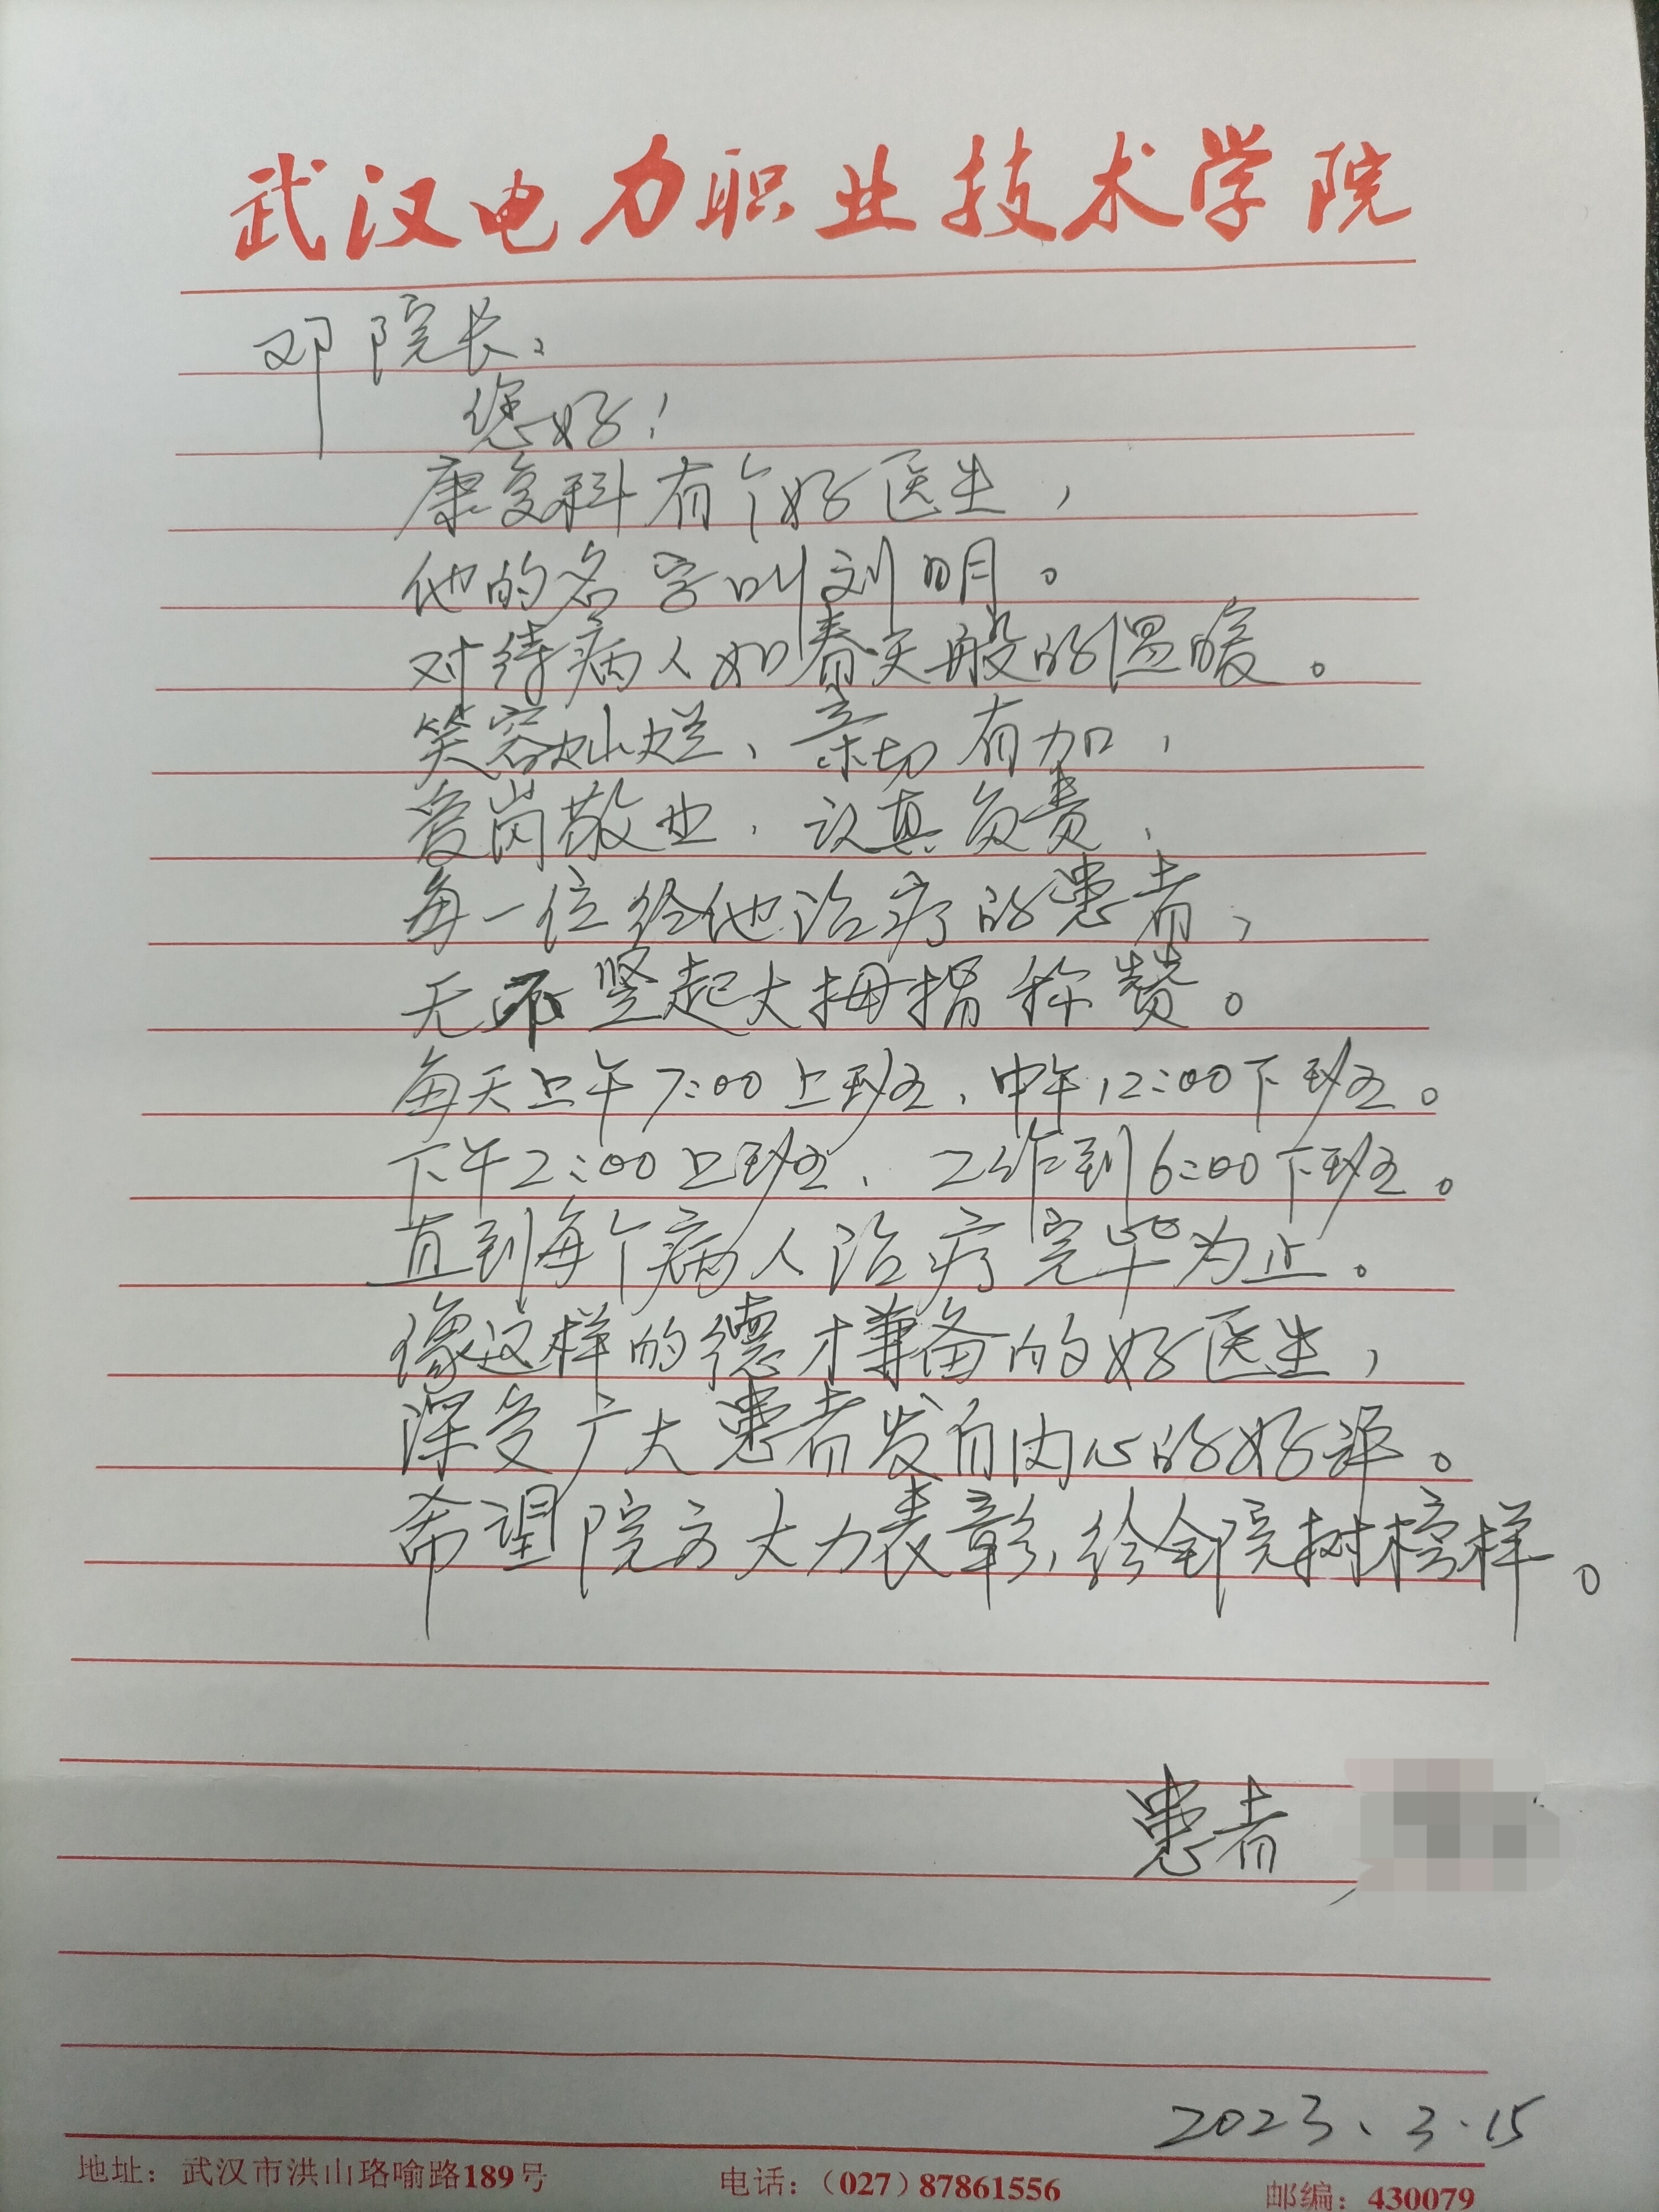 武汉电力职业技术学院
邓院长：
您好！
康复科有个好医生，
他的名字叫刘明。
对待病人如春天般的温暖。
笑容灿烂、亲切有加，
爱岗敬业，认真负责，
每一位经他治疗的患者，
无不竖起大拇指称赞。
每天上午7:00上班，中午12:00下班。
下午2:00上班，工作到6:00下班。
直到每个病人治疗完毕为止。
像这样的德才兼备的好医生，
深受广大患者发自内心的好评。
希望院方大力表彰，给全院树榜样。
患者
2023、3.15
地址：武汉市洪山珞喻路189号 电话：（027）87861556 邮编：430079